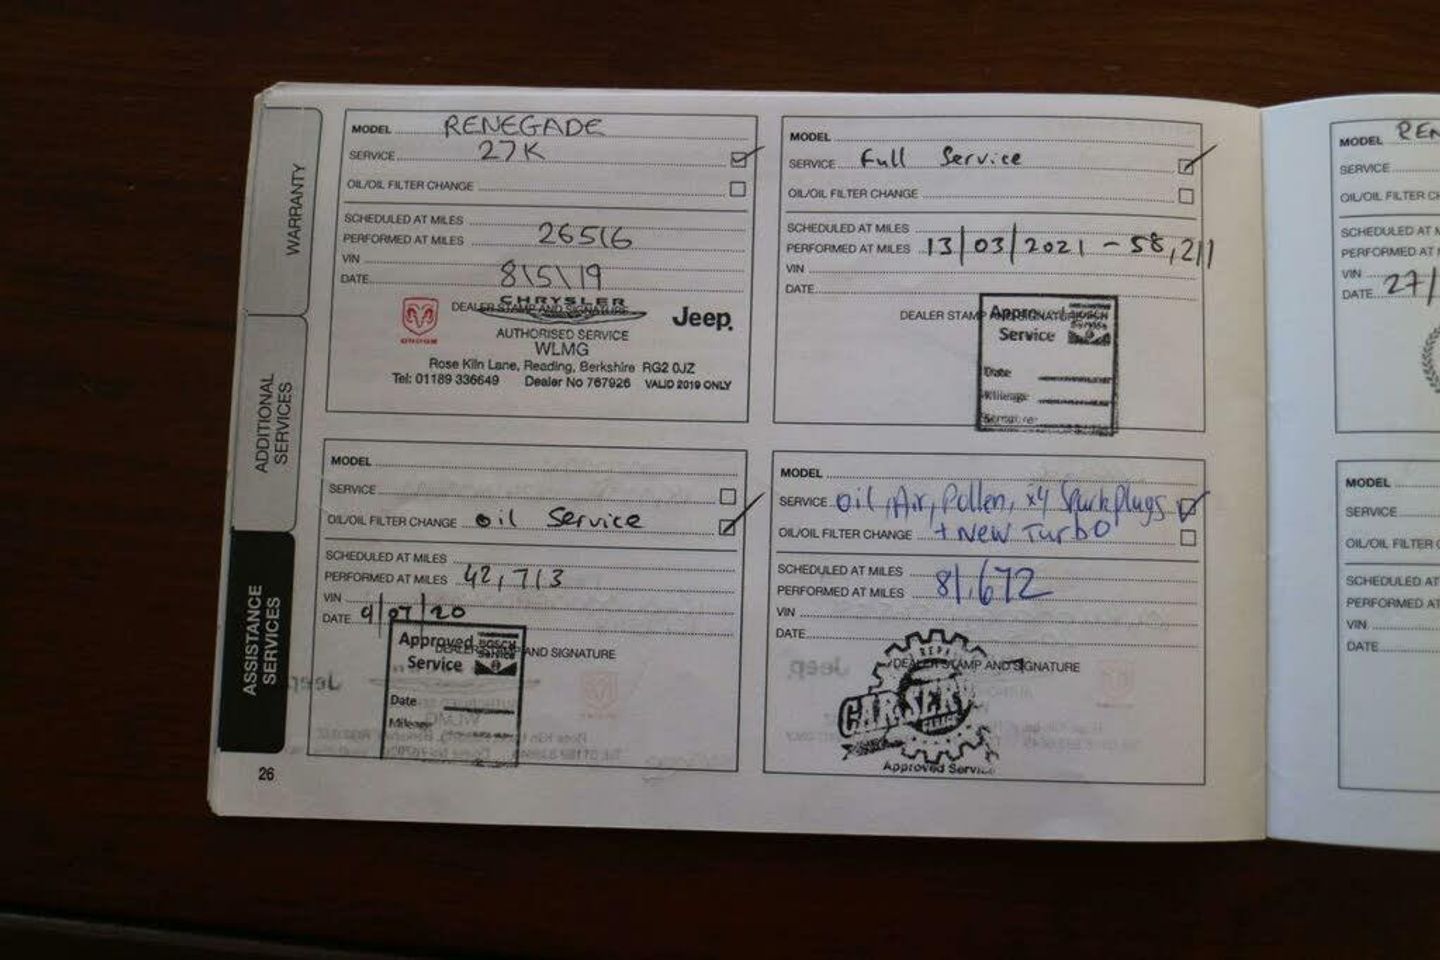 WARRANTY
ADDITIONAL
SERVICES
ASSISTANCE
SERVICES
26
MODEL RENEGADE
SERVICE 27K
OIL/OIL FILTER CHANGE
SCHEDULED AT MILES
PERFORMED AT MILES 26516
VIN
DATE 8\5\19
DEALER STAMP AND SIGNATURE
CHRYSLER
DODGE
Jeep
AUTHORISED SERVICE
WLMG
Rose Kiln Lane, Reading, Berkshire RG2 0JZ
Tel: 01189 336649 Dealer No 767926 VALID 2019 ONLY
MODEL
SERVICE Full Service
OIL/OIL FILTER CHANGE
SCHEDULED AT MILES
PERFORMED AT MILES 13/03/2021 - 58,211
VIN
DATE
DEALER STAMP AND SIGNATURE
Approved BOSCH
Service Service
Date
Mileage
Signature
MODEL
SERVICE
OIL/OIL FILTER CHANGE oil Service
SCHEDULED AT MILES
PERFORMED AT MILES 42,713
VIN
DATE 9/07/20
DEALER STAMP AND SIGNATURE
Approved BOSCH
Service Service
Date
Mileage
MODEL
SERVICE Oil, Air, Pollen, x4 Sparkplugs
OIL/OIL FILTER CHANGE + New Turbo
SCHEDULED AT MILES
PERFORMED AT MILES 81,672
VIN
DATE
DEALER STAMP AND SIGNATURE
REPAIR
CAR SERV
GARAGE
Approved Service
MODEL REN
SERVICE
OIL/OIL FILTER CH
SCHEDULED AT M
PERFORMED AT
VIN
DATE 27/
MODEL
SERVICE
OIL/OIL FILTER C
SCHEDULED AT
PERFORMED AT
VIN
DATE